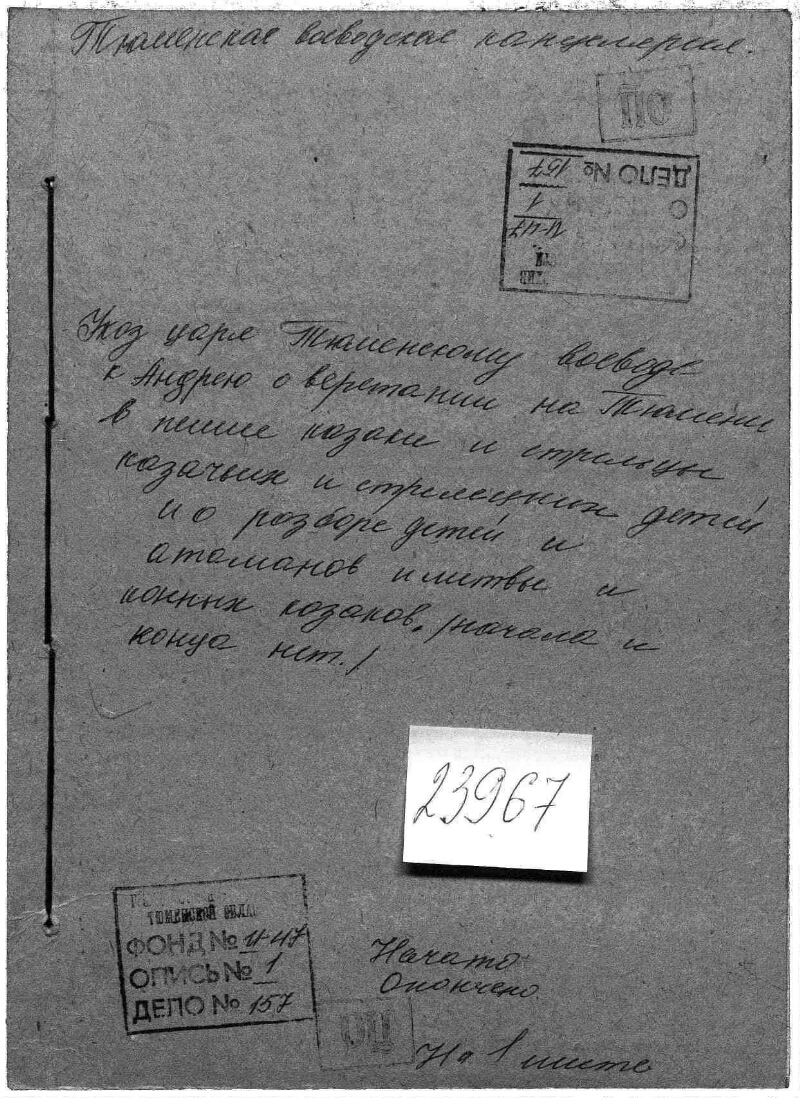 Тюменская воеводская канцелярия.
ПО
ДЕЛО № 157
1
И-47
Указ царя Тюменскому воеводе
к Андрею о верстании на Тюмени
в пешие казаки и стрельцы
казачьих и стрелецких детей
и о разборе детей и
атаманов и литвы и
конных казаков. /начала и
конца нет./
23967
ТЮМЕНСКОЙ ОБЛАС
ФОНД № И-47
ОПИСЬ № 1
ДЕЛО № 157
Начато
Окончено
ОЦ
На 1 листе